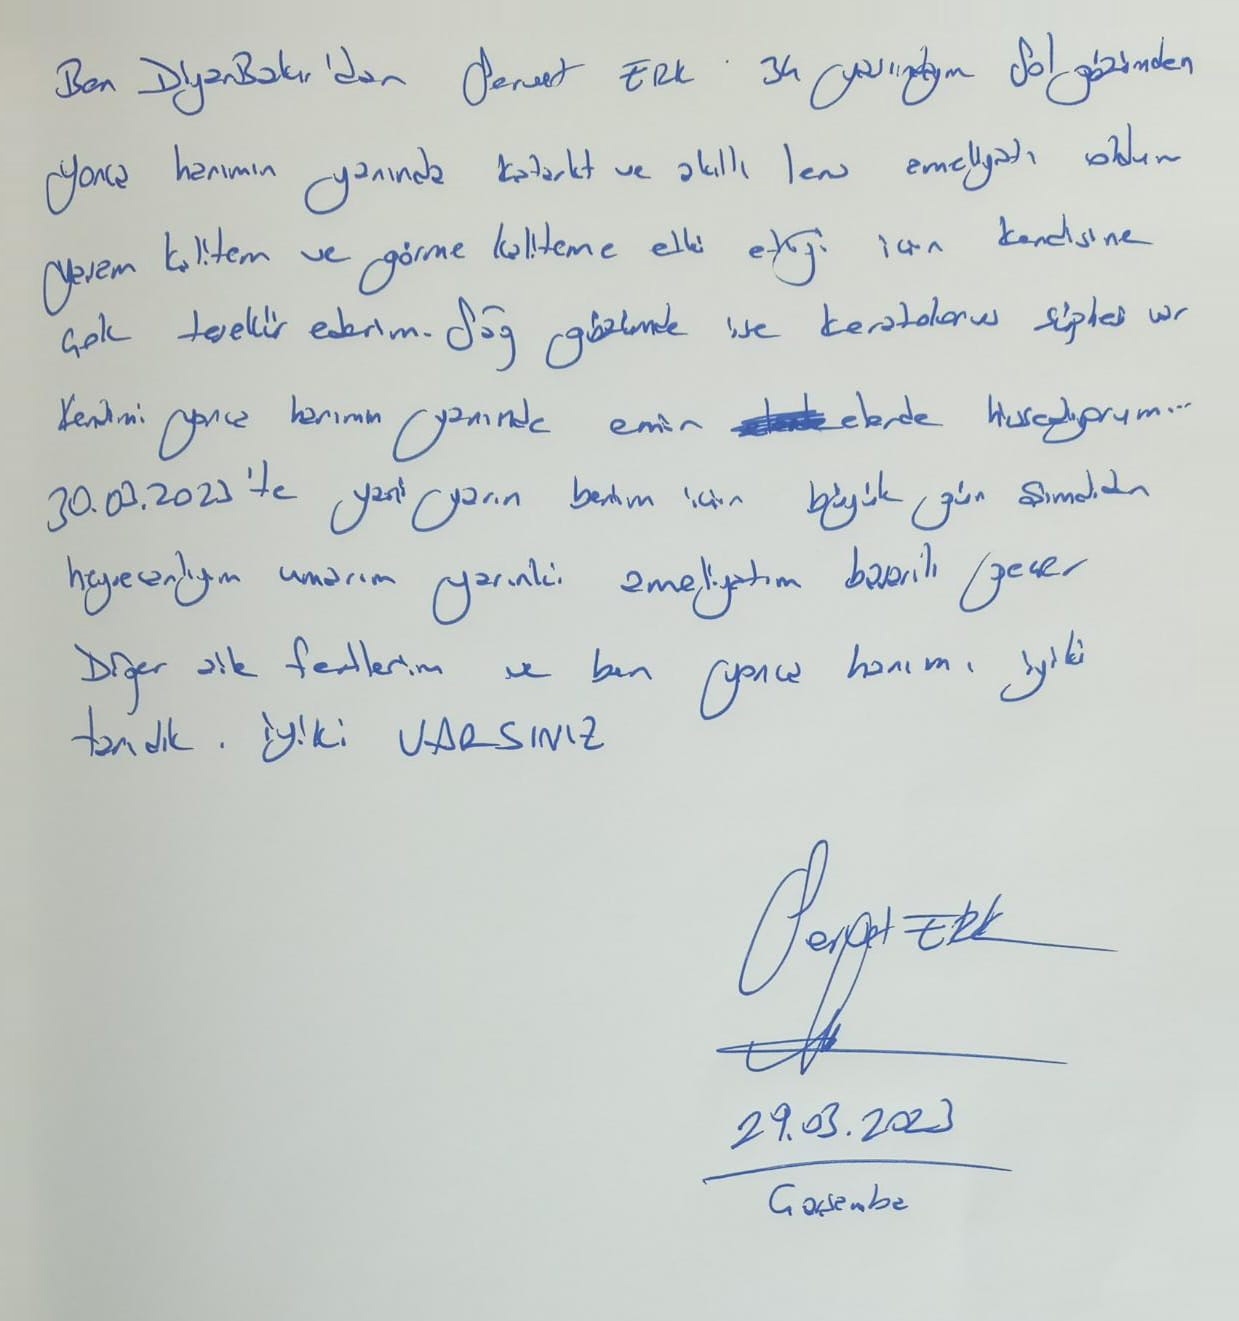 Ben DiyarBakır'dan Servet ERK 34 yaşındayım Sol gözümden
Yonca hanımın yanında katarkt ve akıllı lens ameliyatı oldum
yaşam kalitem ve görme kaliteme etki ettiği için kendisine
çok teşekür ederim. Sağ gözümde ise keratokonus şüphesi var
Kendimi yonca hanımın yanında emin elerde hissediyorum...
30.03.2023'te yani yarın benim için büyük gün şimdiden
heyecanlıyım umarım yarınki ameliyatım başarılı geçer
Diğer aile fertlerim ve ben yonca hanımı iyiki
tanıdık. iyiki VARSINIZ
Servet ERK
29.03.2023
Çarşamba